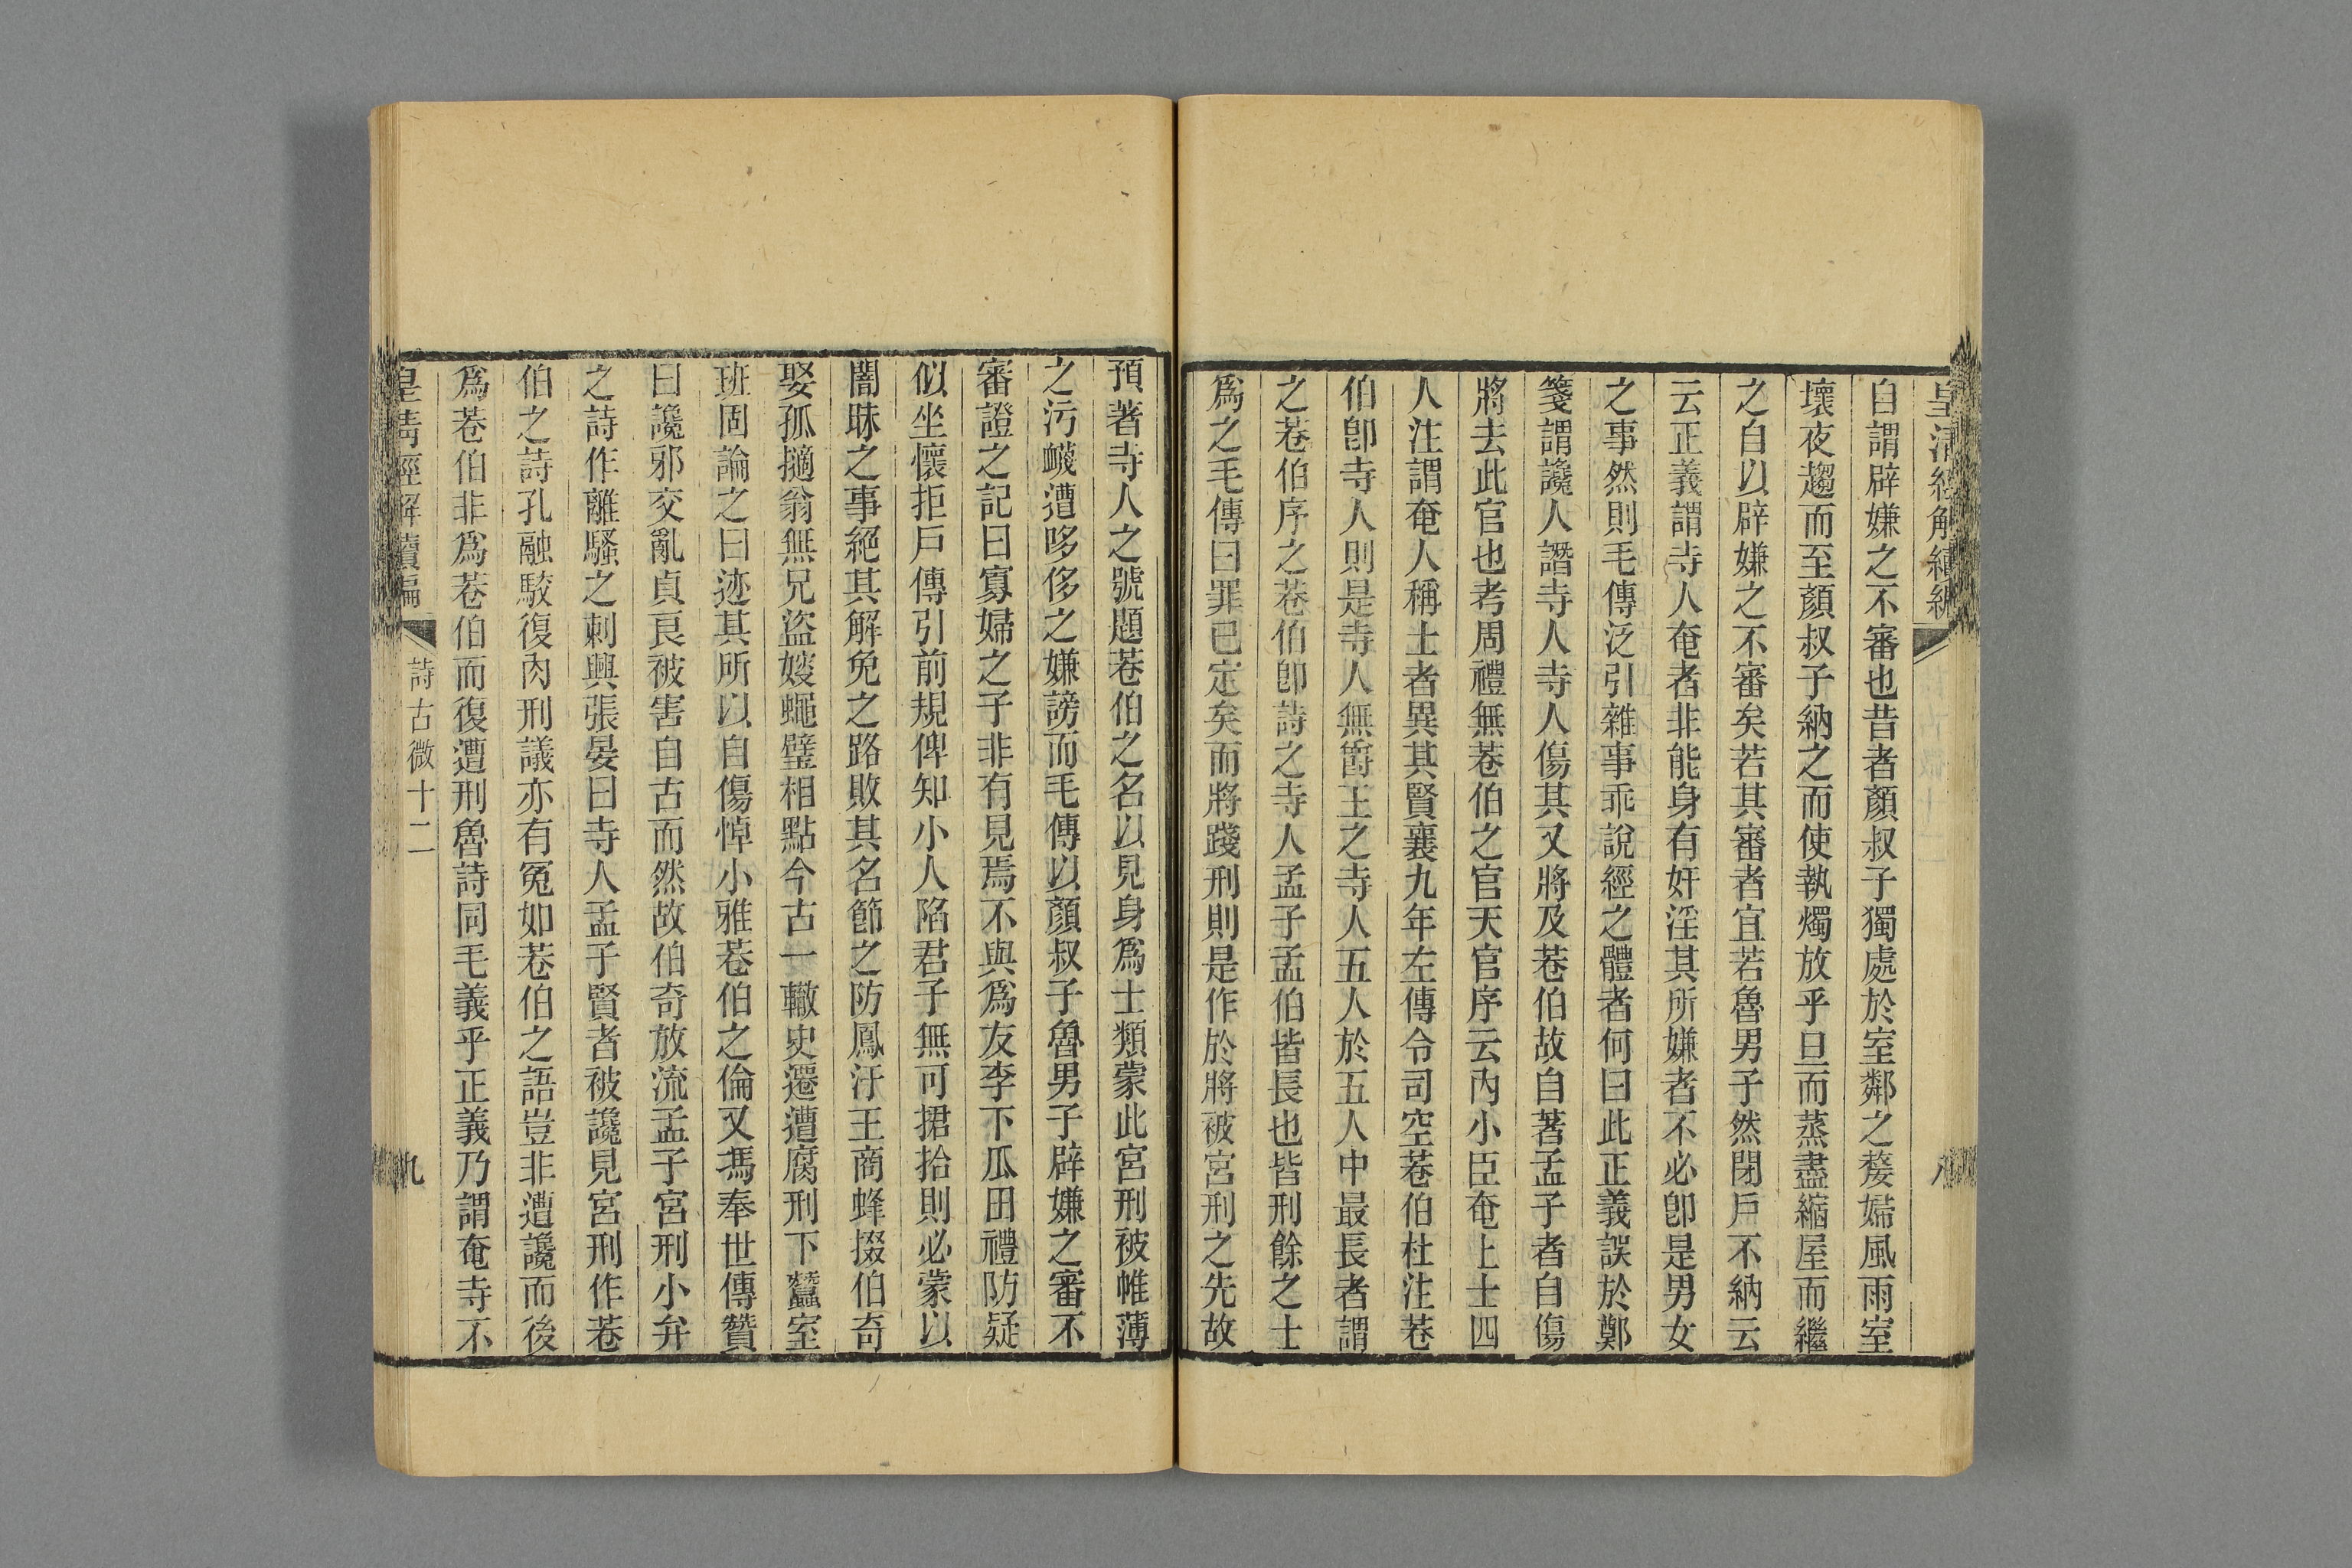 皇清經解續編
八
自謂辟嫌之不審也昔者顏叔子獨處於室鄰之嫠婦風雨室
壞夜趨而至顏叔子納之而使執燭放乎旦而蒸盡縮屋而繼
之自以辟嫌之不審矣若其審者宜若魯男子然閉戶不納云
云正義謂寺人奄者非能身有奸淫其所嫌者不必卽是男女
之事然則毛傳泛引雜事乖說經之體者何曰此正義誤於鄭
箋謂讒人譖寺人寺人傷其又將及巷伯故自著孟子者自傷
將去此官也考周禮無巷伯之官天官序云內小臣奄上士四
人注謂奄人稱士者異其賢襄九年左傳令司空巷伯杜注巷
伯卽寺人則是寺人無爵王之寺人五人於五人中最長者謂
之巷伯序之巷伯卽詩之寺人孟子孟伯皆長也皆刑餘之士
爲之毛傳曰罪已定矣而將踐刑則是作於將被宮刑之先故
預著寺人之號題巷伯之名以見身爲士類蒙此宮刑被帷薄
之污衊遭哆侈之嫌謗而毛傳以顏叔子魯男子辟嫌之審不
審證之記曰寡婦之子非有見焉不與爲友李下瓜田禮防疑
似坐懷拒戶傳引前規俾知小人陷君子無可捃拾則必蒙以
闇昧之事絕其解免之路敗其名節之防鳳汙王商蜂掇伯奇
娶孤撾翁無兄盜嫂蠅璧相點今古一轍史遷遭腐刑下蠶室
班固論之曰迹其所以自傷悼小雅巷伯之倫又馮奉世傳贊
曰讒邪交亂貞良被害自古而然故伯奇放流孟子宮刑小弁
之詩作離騷之刺興張晏曰寺人孟子賢者被讒見宮刑作巷
伯之詩孔融駮復肉刑議亦有冤如巷伯之語豈非遭讒而後
爲巷伯非爲巷伯而復遭刑魯詩同毛義乎正義乃謂奄寺不
皇清經解續編
詩古微十二
九